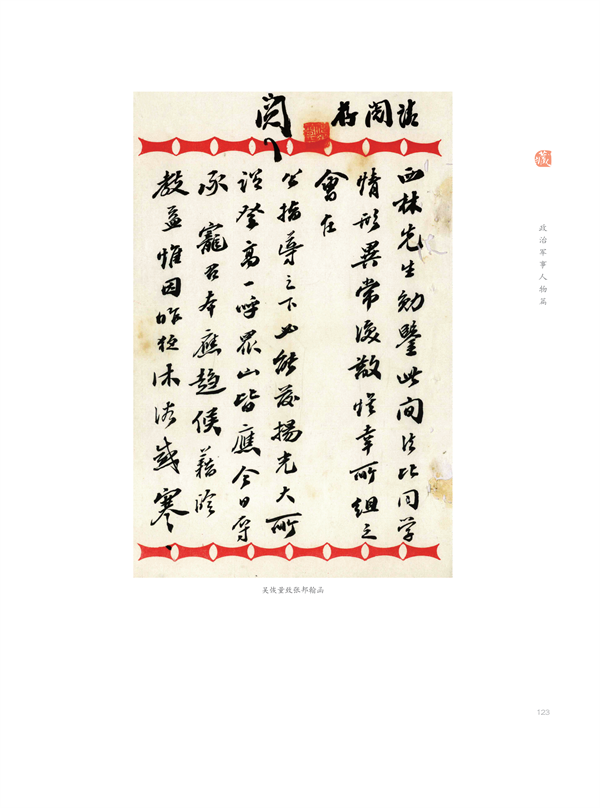 請閱存
閱
西林先生勛鑒此間法比同学
情形異常渙散惟幸所組之
會在
公指導之下必能發揚光大所
謂登高一呼眾山皆應今日辱
承寵召本應趨候藉聆
教益惟因昨夜沐浴感寒
吴俊致张邦翰函
藏
政治军事人物篇
123